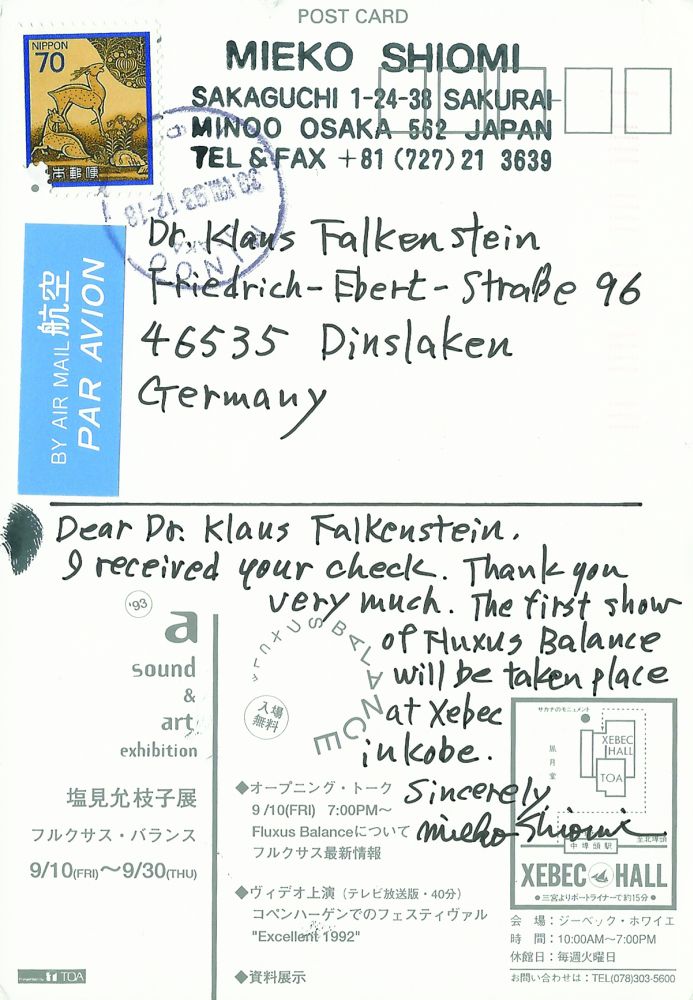 POST CARD
NIPPON
70
日本郵便
MIEKO SHIOMI
SAKAGUCHI 1-24-38 SAKURAI
MINOO OSAKA 562 JAPAN
TEL & FAX +81 (727) 21 3639
MINOO
BY AIR MAIL 航空
PAR AVION
Dr. Klaus Falkenstein
Friedrich-Ebert-Straße 96
46535 Dinslaken
Germany
Dear Dr. Klaus Falkenstein.
I received your check. Thank you
very much. The first show
of Fluxus Balance
will be taken place
at Xebec
in kobe.
Sincerely
mieko Shiomi
'93
a
sound
&
art
exhibition
塩見允枝子展
フルクサス・バランス
9/10(FRI)〜9/30(THU)
TOA
FLUXUS BALANCE
入場
無料
◆オープニング・トーク
9/10(FRI) 7:00PM〜
Fluxus Balanceについて
フルクサス最新情報
◆ヴィデオ上演（テレビ放送版・40分）
コペンハーゲンでのフェスティヴァル
"Excellent 1992"
◆資料展示
サカナのモニュメント
XEBEC
HALL
TOA
風月堂
中埠頭駅
至北埠頭
XEBEC HALL
●三宮よりポートライナーで約15分●
会 場：ジーベック・ホワイエ
時 間：10:00AM〜7:00PM
休館日：毎週火曜日
お問い合わせは：TEL(078)303-5600